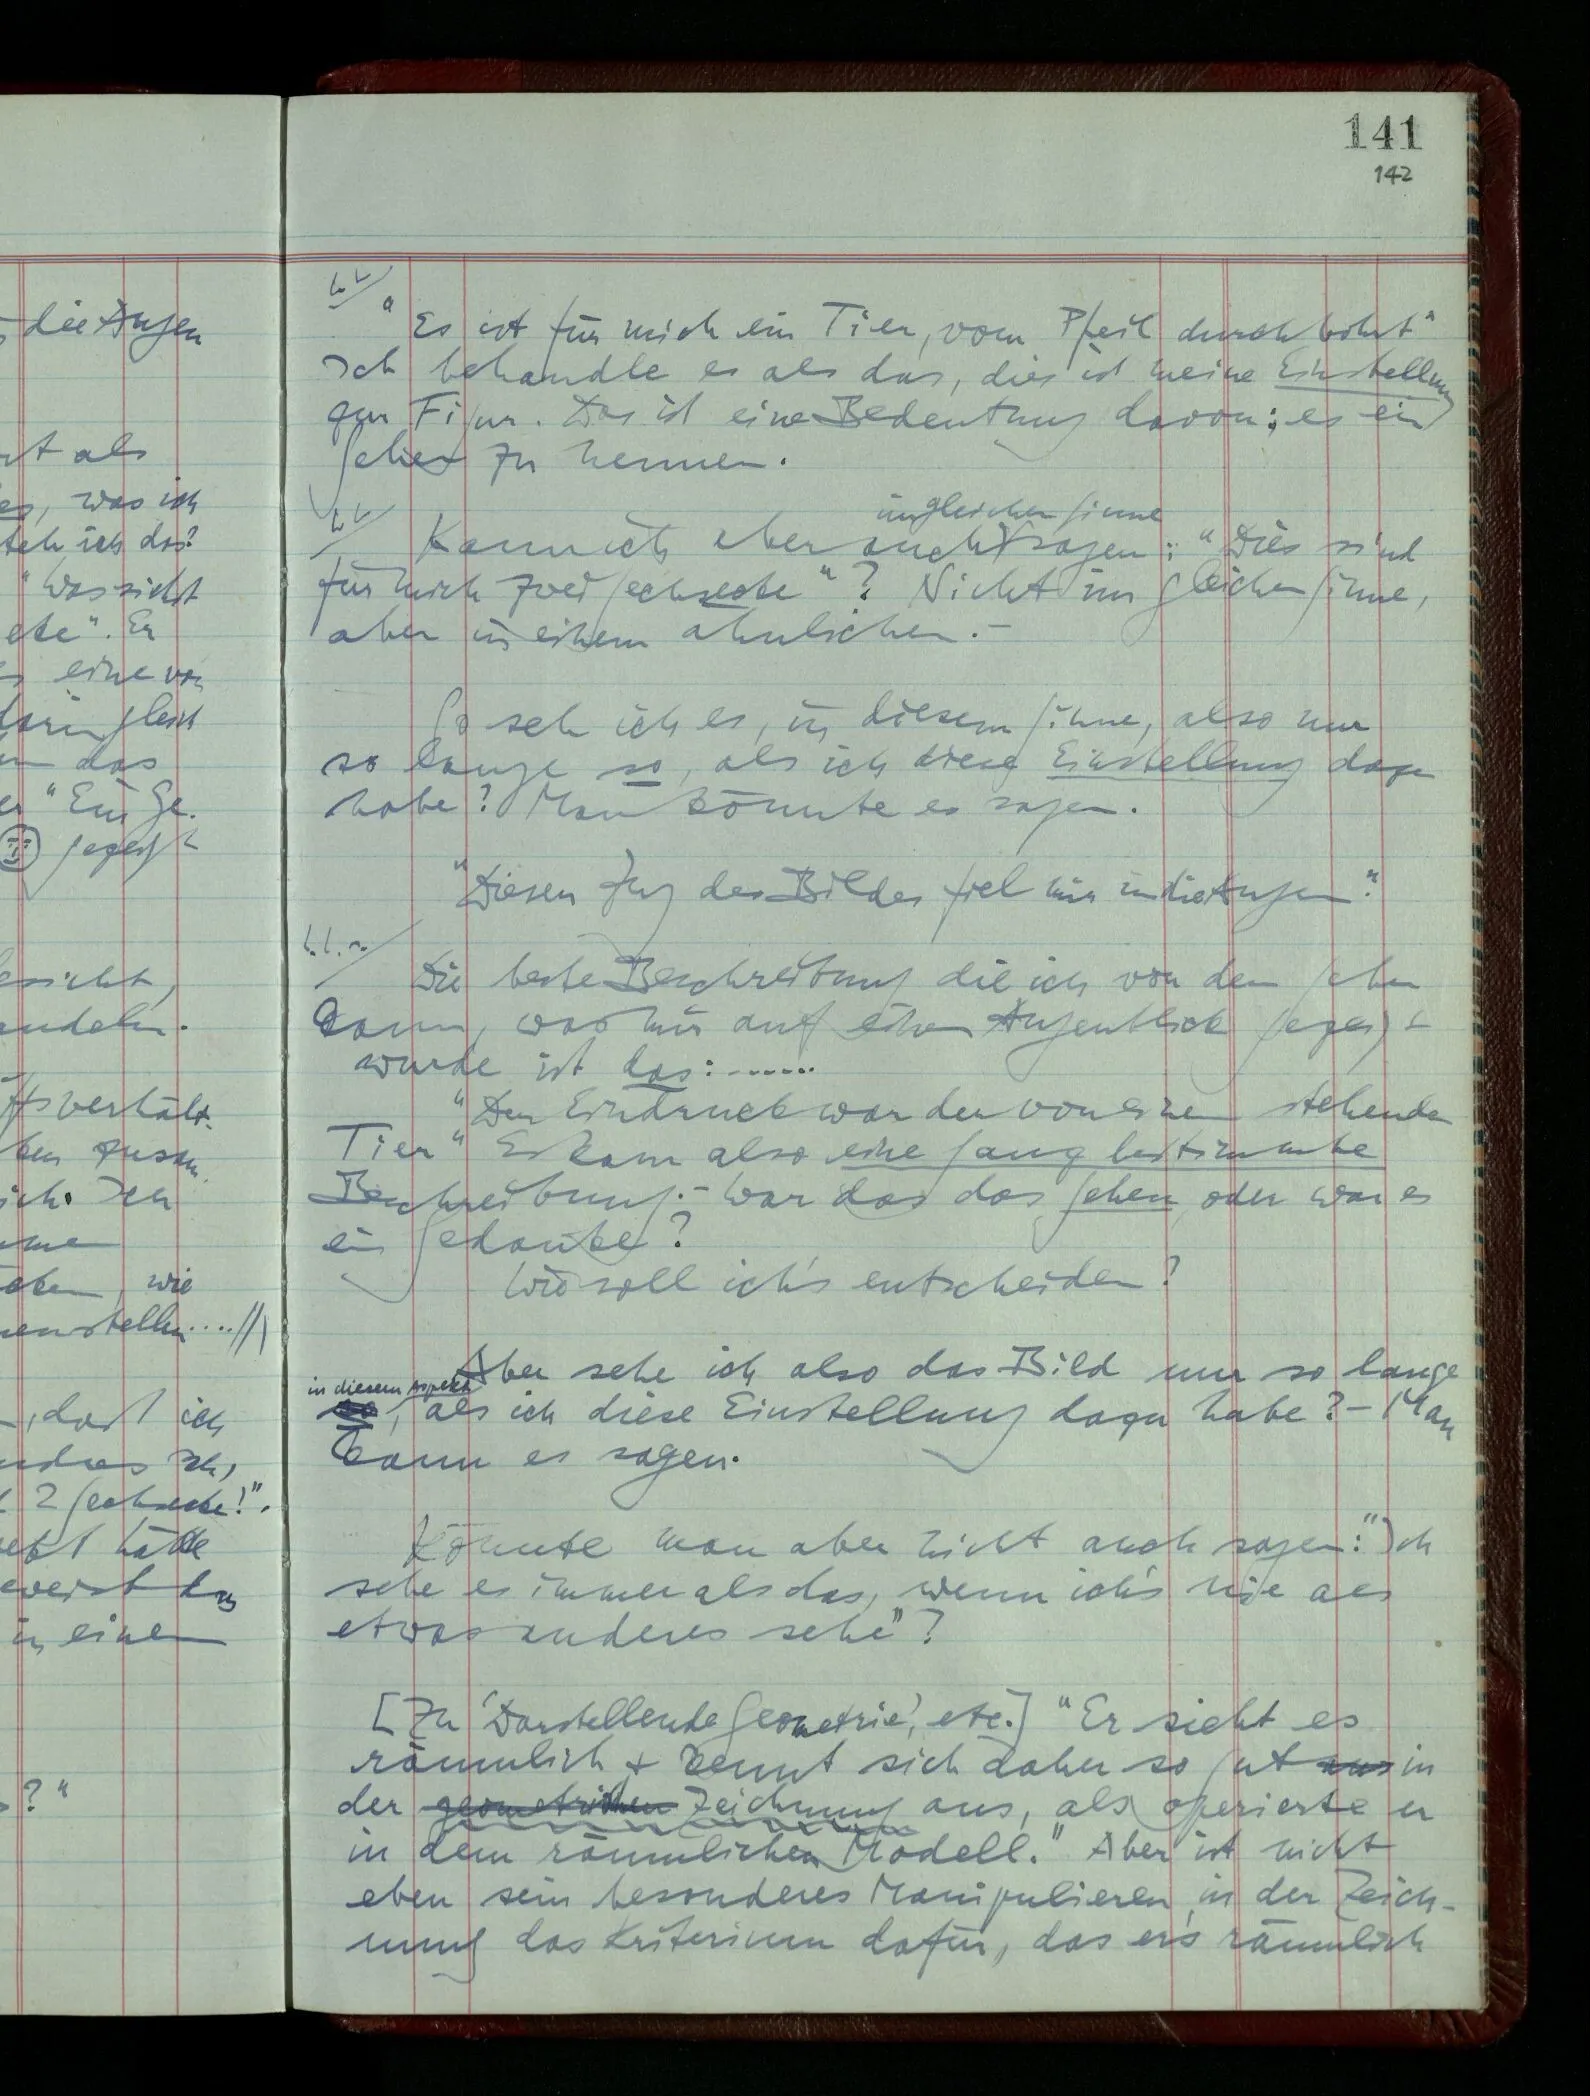 141
142
die Augen
"Es ist für mich ein Tier, vom Pfeil durchbohrt"
Ich behandle es als das, dies ist meine Einstellung
zur Figur. Das ist eine Bedeutung davon; es ein
Sehen zu nennen.
im gleichen Sinne
Kann ich aber auch sagen: "Dies sind
für mich zwei Sechsecke"? Nicht im gleichen Sinne,
aber in einem ähnlichen. –
So seh ich es, in diesem Sinne, also nur
so lange so, als ich diese Einstellung dazu
habe? Man könnte es sagen.
"Dieser Zug des Bildes fiel mir in die Augen".
Die beste Beschreibung die ich von dem geben
kann, was mir auf einen Augenblick gezeigt
wurde ist das: ......
"Der Eindruck war der von einem stehenden
Tier" Es kam also eine ganz bestimmte
Beschreibung. – War das das Sehen, oder war es
ein Gedanke?
Wie soll ich's entscheiden?
Aber sehe ich also das Bild nur so lange
in diesem Aspekt
so, als ich diese Einstellung dazu habe? – Man
kann es sagen.
Könnte man aber nicht auch sagen: "Ich
sehe es immer als das, wenn ich's nie als
etwas anderes sehe"?
[Zu 'Darstellende Geometrie', etc.] "Er sieht es
räumlich & kennt sich daher so gut aus in
der geometrischen Zeichnung aus, als operierte er
in dem räumlichen Modell." Aber ist nicht
eben sein besonderes Manipulieren in der Zeich-
nung das Kriterium dafür, das er's räumlich